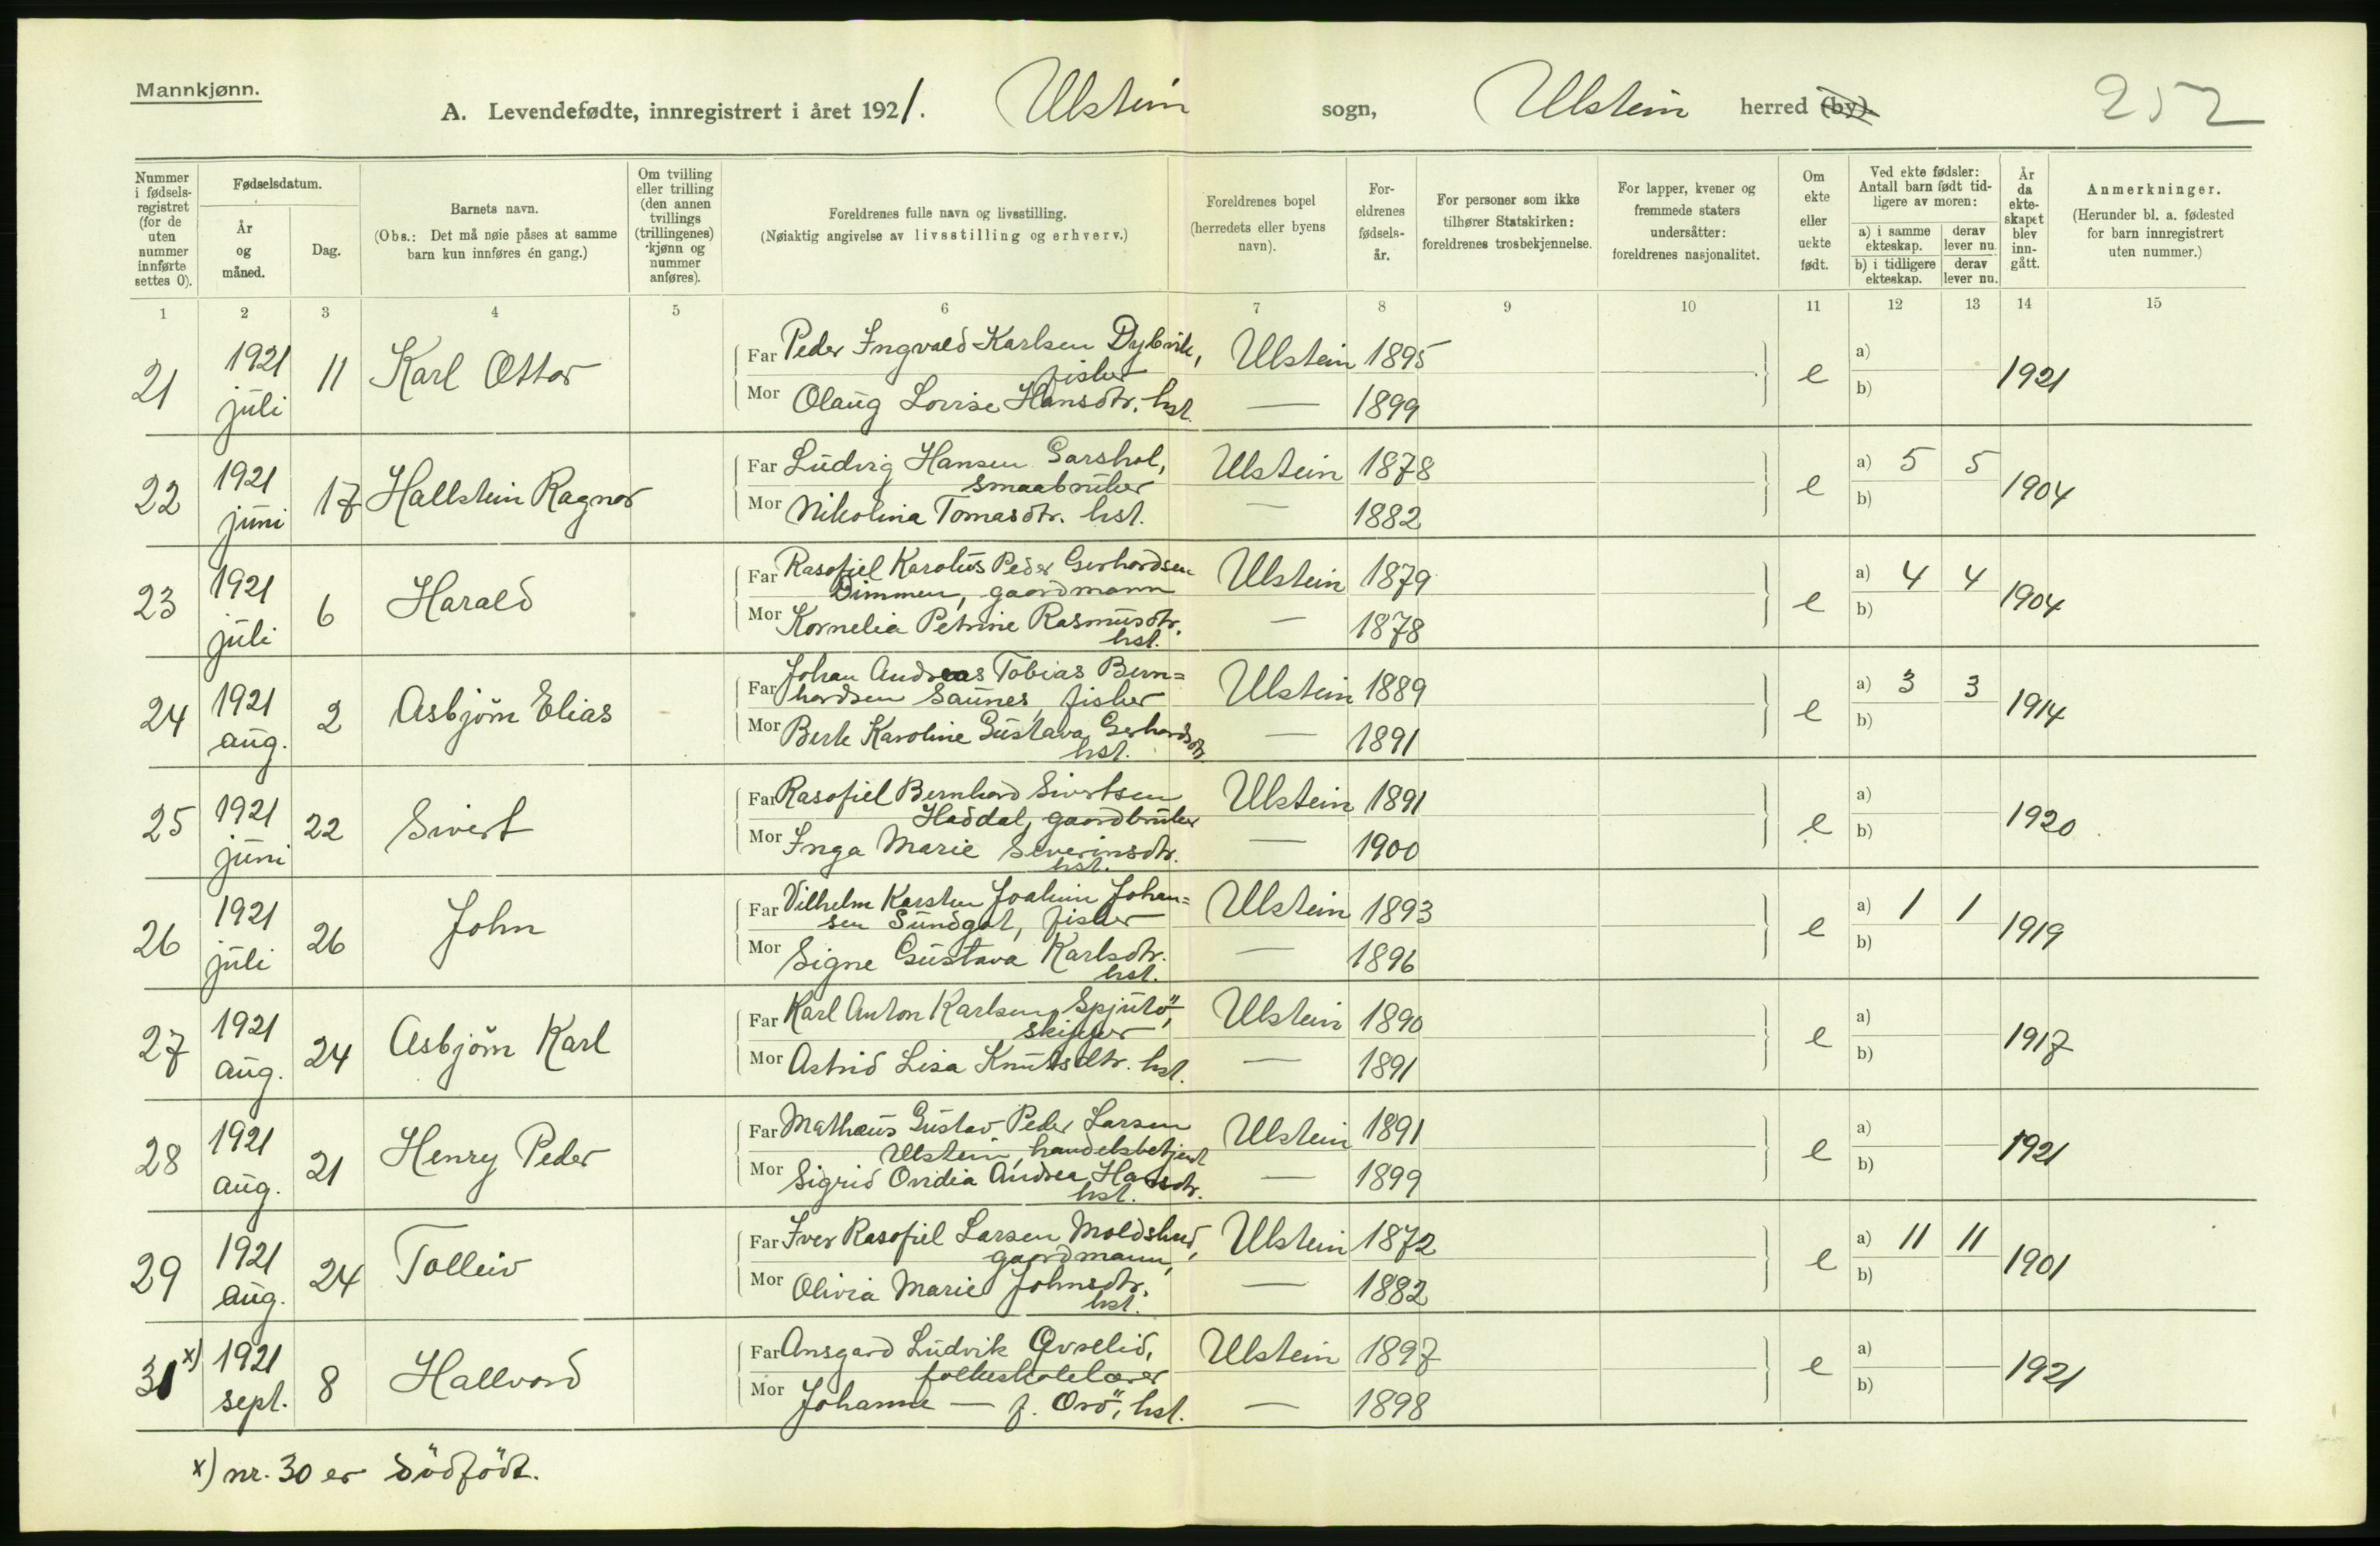 Mannkjønn.
A. Levendefødte, innregistrert i året 1921. Ulstein sogn, Ulstein herred (by). 252
Nummer i fødsels-registret (for de uten nummer innførte settes 0).
Fødselsdatum.
År og måned.
Dag.
Barnets navn.
(Obs.: Det må nøie påses at samme barn kun innføres én gang.)
Om tvilling eller trilling (den annen tvillings (trillingenes) kjønn og nummer anføres).
Foreldrenes fulle navn og livsstilling.
(Nøiaktig angivelse av livsstilling og erhverv.)
Foreldrenes bopel (herredets eller byens navn).
For-eldrenes fødsels-år.
For personer som ikke tilhører Statskirken: foreldrenes trosbekjennelse.
For lapper, kvener og fremmede staters undersåtter: foreldrenes nasjonalitet.
Om ekte eller uekte født.
Ved ekte fødsler: Antall barn født tid-ligere av moren:
a) i samme ekteskap. derav lever nu.
b) i tidligere ekteskap. derav lever nu.
År da ekte-skapet blev inn-gått.
Anmerkninger.
(Herunder bl. a. fødested for barn innregistrert uten nummer.)
1 2 3 4 5 6 7 8 9 10 11 12 13 14 15
21 1921 juli 11 Karl Ottar
Far Peder Ingvald Karlsen Dybvik, fisker Ulstein 1895 e a) b) — 1921
Mor Olaug Lovise Hansdtr. hst. — 1899
22 1921 juni 17 Hallstein Ragnar
Far Ludvig Hansen Garshol, smaabruker Ulstein 1878 e a) 5 5 b) 1904
Mor Nikolina Tomasdtr. hst. — 1882
23 1921 juli 6 Harald
Far Rasofiel Karolus Peder Gerhardsen Dimmen, gaardmann Ulstein 1879 e a) 4 4 b) 1904
Mor Kornelia Petrine Rasmusdtr. hst. — 1878
24 1921 aug. 2 Asbjörn Elias
Far Johan Andreas Tobias Bern=
hardsen Saunes, fisker Ulstein 1889 e a) 3 3 b) 1914
Mor Berte Karoline Gustava Gerhardsdtr. hst. — 1891
25 1921 juni 22 Sivert
Far Rasofiel Bernhard Sivertsen Haddal, gaardbruker Ulstein 1891 e a) b) 1920
Mor Inga Marie Severinsdtr. hst. — 1900
26 1921 juli 26 John
Far Vilhelm Karsten Joakim Johan=
sen Sundgot, fisker Ulstein 1893 e a) 1 1 b) 1919
Mor Signe Gustava Karlsdtr. hst. — 1896
27 1921 aug. 24 Asbjörn Karl
Far Karl Anton Karlsen Spjutö, skipper Ulstein 1890 e a) b) — 1917
Mor Astrid Lisa Knutsdtr. hst. — 1891
28 1921 aug. 21 Henry Peder
Far Mathæus Gustav Peder Larsen Ulstein, handelsbetjent Ulstein 1891 e a) b) — 1921
Mor Sigrid Ovidia Andrea Hansdtr. hst. — 1899
29 1921 aug. 24 Tolleiv
Far Iver Rasofiel Larsen Moldskred, gaardmann, Ulstein 1872 e a) 11 11 b) 1901
Mor Olivia Marie Johnsdtr. hst. — 1882
31 x) 1921 sept. 8 Hallvard
Far Ansgard Ludvik Qvrelid, folkeskolelærer Ulstein 1897 e a) b) — 1921
Mor Johanne — f. Orö, hst. — 1898
x) nr. 30 er dödfödt.